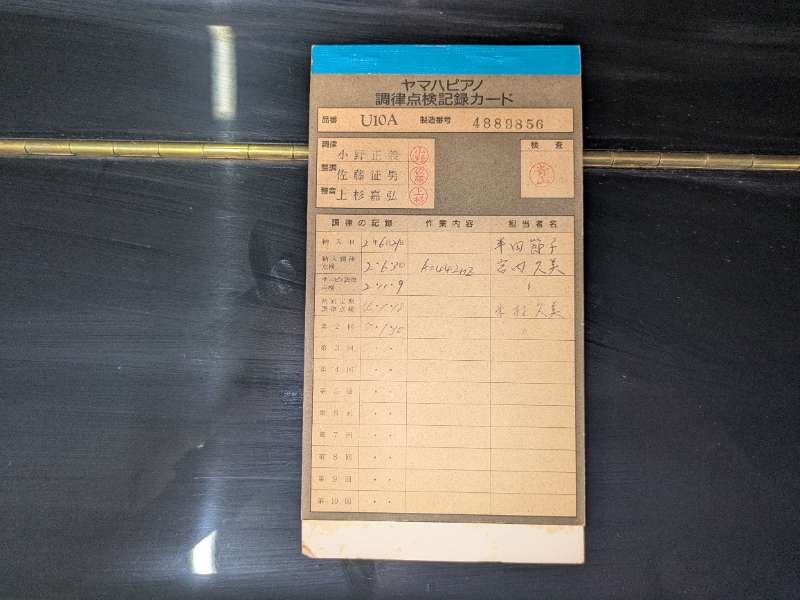 ヤマハピアノ
調律点検記録カード
品番 U10A 製造番号 4889856
調律 小野正義 検査
整調 佐藤征男
整音 上杉嘉弘 上杉
調律の記録 作業内容 担当者名
納入日 平田節子
納入調律点検 2・6・30 A=442HZ 宮内久美
サービス調律点検 2・11・9 〃
調律点検 木村久美
第2回 〃
第3回 ・ ・
第4回 ・ ・
第5回 ・ ・
第6回 ・ ・
第7回 ・ ・
第8回 ・ ・
第9回 ・ ・
第10回 ・ ・